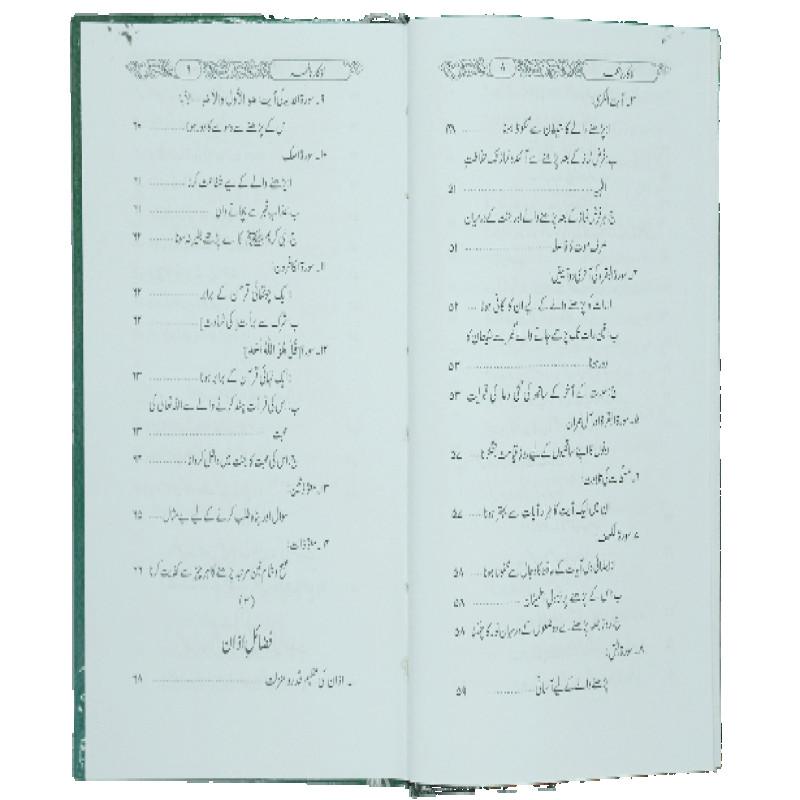 اذکار نافعہ ۸
۳۔ آیت الکرسی:
ا: پڑھنے والے کا شیطان سے محفوظ ہونا ۴۸
ب: فرض نماز کے بعد پڑھنے سے آئندہ نماز تک حفاظتِ
الٰہیہ ۵۱
ج: ہر فرض نماز کے بعد پڑھنے والے اور جنت کے درمیان
صرف موت کا فاصلہ ۵۱
۴۔ سورۃ البقرہ کی آخری دو آیتیں:
ا: رات کو پڑھنے والے کے لیے ان کا کافی ہونا ۵۲
ب: تین رات تک پڑھے جانے والے گھر سے شیطان کا
دور ہونا ۵۲
ج: سورت کے آخر کے ساتھ کی گئی دعا کی قبولیت ۵۳
۵۔ سورۃ البقرۃ اور آل عمران
دونوں کا اپنے ساتھیوں کے لیے روزِ قیامت جھگڑنا ۵۷
۶۔ کی تلاوت:
ان میں ایک آیت کا ہزار آیات سے بہتر ہونا ۵۷
۷۔ سورۃ الکہف
ا: ابتدائی دس آیات کے دجال سے محفوظ ہونا ۵۸
ب: اس کے پڑھنے پر نزولِ اطمینان ۵۸
ج: روزِ جمعہ پڑھنے سے دو جمعوں کے درمیان نور کا چمکنا ۵۸
۸۔ سورۃ
پڑھنے والے کے لیے آسانی ۵۹
اذکار نافعہ ۹
۹۔ سورۃ الحدید کی آیت: هو الأول والآخر ... الآیۃ:
اس کے پڑھنے سے وسوسے کا دور ہونا ۶۰
۱۰۔ سورۃ الملک
ا: پڑھنے والے کے لیے شفاعت کرنا ۶۱
ب: عذابِ قبر سے بچانے والی ۶۱
ج: نبی کریم ﷺ کا اسے پڑھے بغیر نہ سونا ۶۲
۱۱۔ سورۃ الکافرون:
ا: ایک چوتھائی قرآن کے برابر ۶۲
ب: شرک سے براءت [کی شہادت] ۶۲
۱۲۔ سورۃ [قُلْ هُوَ اللّٰهُ أَحَد]
ا: ایک تہائی قرآن کے برابر ہونا ۶۳
ب: اس کی قراءت پسند کرنے والے سے اللہ تعالیٰ کی
محبت ۶۳
ج: اس کی محبت کا جنت میں داخل کروانا ۶۴
۱۳۔ معوذتین:
سوال اور پناہ طلب کرنے کے لیے بے مثال ۶۵
۱۴۔ معوذات:
صبح و شام تین مرتبہ پڑھنے کا ہر چیز سے کفایت کرنا ۶۶
(۳)
فضائلِ اذان
۱۔ اذان کی عظیم قدر و منزلت ۶۸